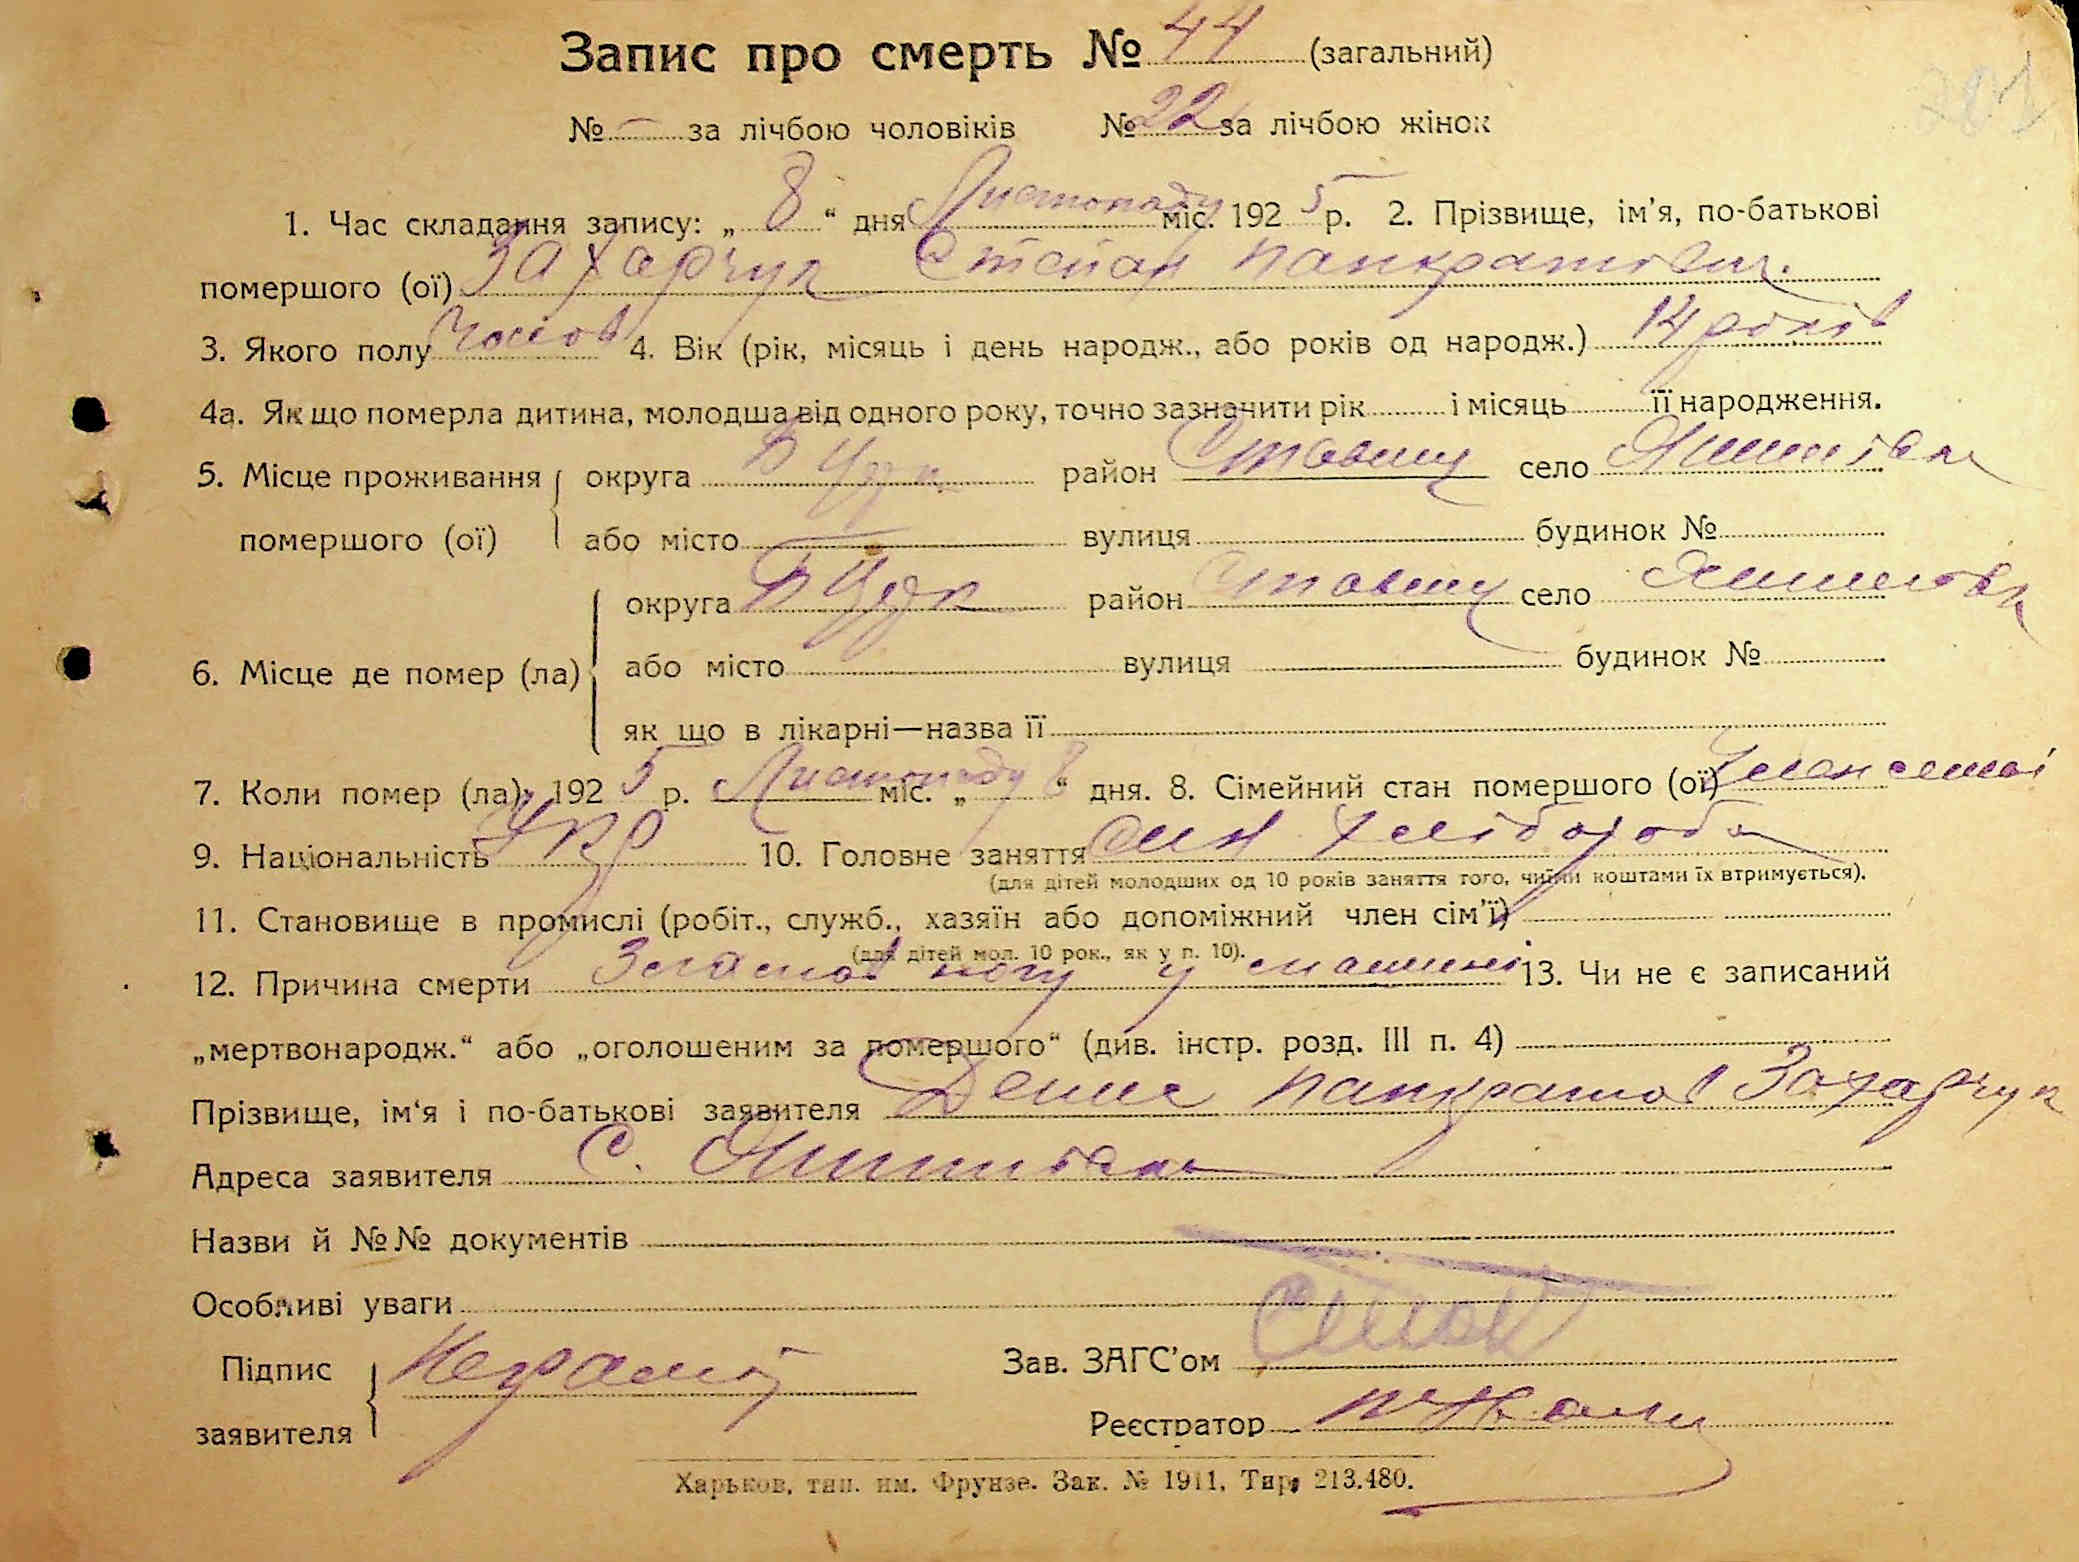 Запис про смерть № 44 (загальний)
№ – за лічбою чоловіків № 22 за лічбою жінок
1. Час складання запису: „ 8 “ дня Листопаду міс. 192 5 р. 2. Прізвище, ім’я, по-батькові
помершого (ої) Захарчук Степан Панкратович.
3. Якого полу чолов 4. Вік (рік, місяць і день народж., або років од народж.) 14 років
4а. Як що померла дитина, молодша від одного року, точно зазначити рік і місяць її народження.
5. Місце проживання округа Б Церк район Ставищ село
помершого (ої) або місто вулиця будинок №
округа Б Церк район Ставищ село
6. Місце де помер (ла) або місто вулиця будинок №
як що в лікарні—назва її
7. Коли помер (ла): 192 5 р. Листопаду міс. „ 8 “ дня. 8. Сімейний стан помершого (ої)
9. Національність Укр 10. Головне заняття син хлібороба
(для дітей молодших од 10 років заняття того, чиїми коштами їх втримується).
11. Становище в промислі (робіт., служб., хазяїн або допоміжний член сім’ї)
(для дітей мол. 10 рок., як у п. 10).
12. Причина смерти Зламав ногу у машині 13. Чи не є записаний
„мертвонародж.“ або „оголошеним за помершого“ (див. інстр. розд. III п. 4)
Прізвище, ім‘я і по-батькові заявителя Денис Панкратов Захарчук
Адреса заявителя с.
Назви й №№ документів
Особливі уваги
Підпис Неграмот Зав. ЗАГС’ом
заявителя Реєстратор
Харьков, тип. им. Фрунзе. Зак. № 1911, Тир. 213.480.